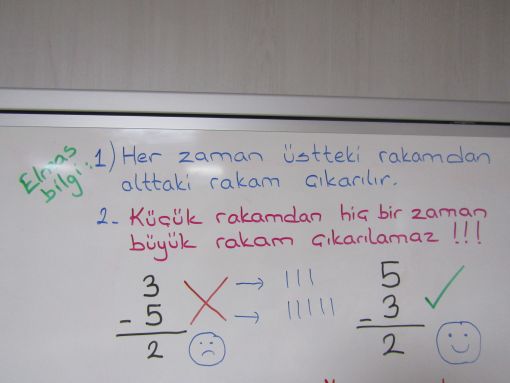 Elmas bilgi:
1) Her zaman üstteki rakamdan
alttaki rakam çıkarılır.
2- Küçük rakamdan hiç bir zaman
büyük rakam çıkarılamaz !!!
3 → |||
- 5 → |||||
2
5
- 3
2